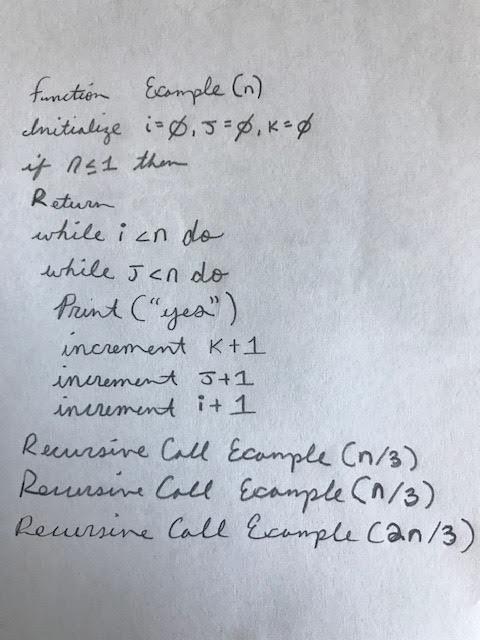 function Example (n)
Initialize i=Ø, J=Ø, K=Ø
if n≤1 then
Return
while i<n do
while J<n do
Print ("yes")
increment K+1
increment J+1
increment i+1
Recursive Call Example (n/3)
Recursive Call Example (n/3)
Recursive Call Example (2n/3)